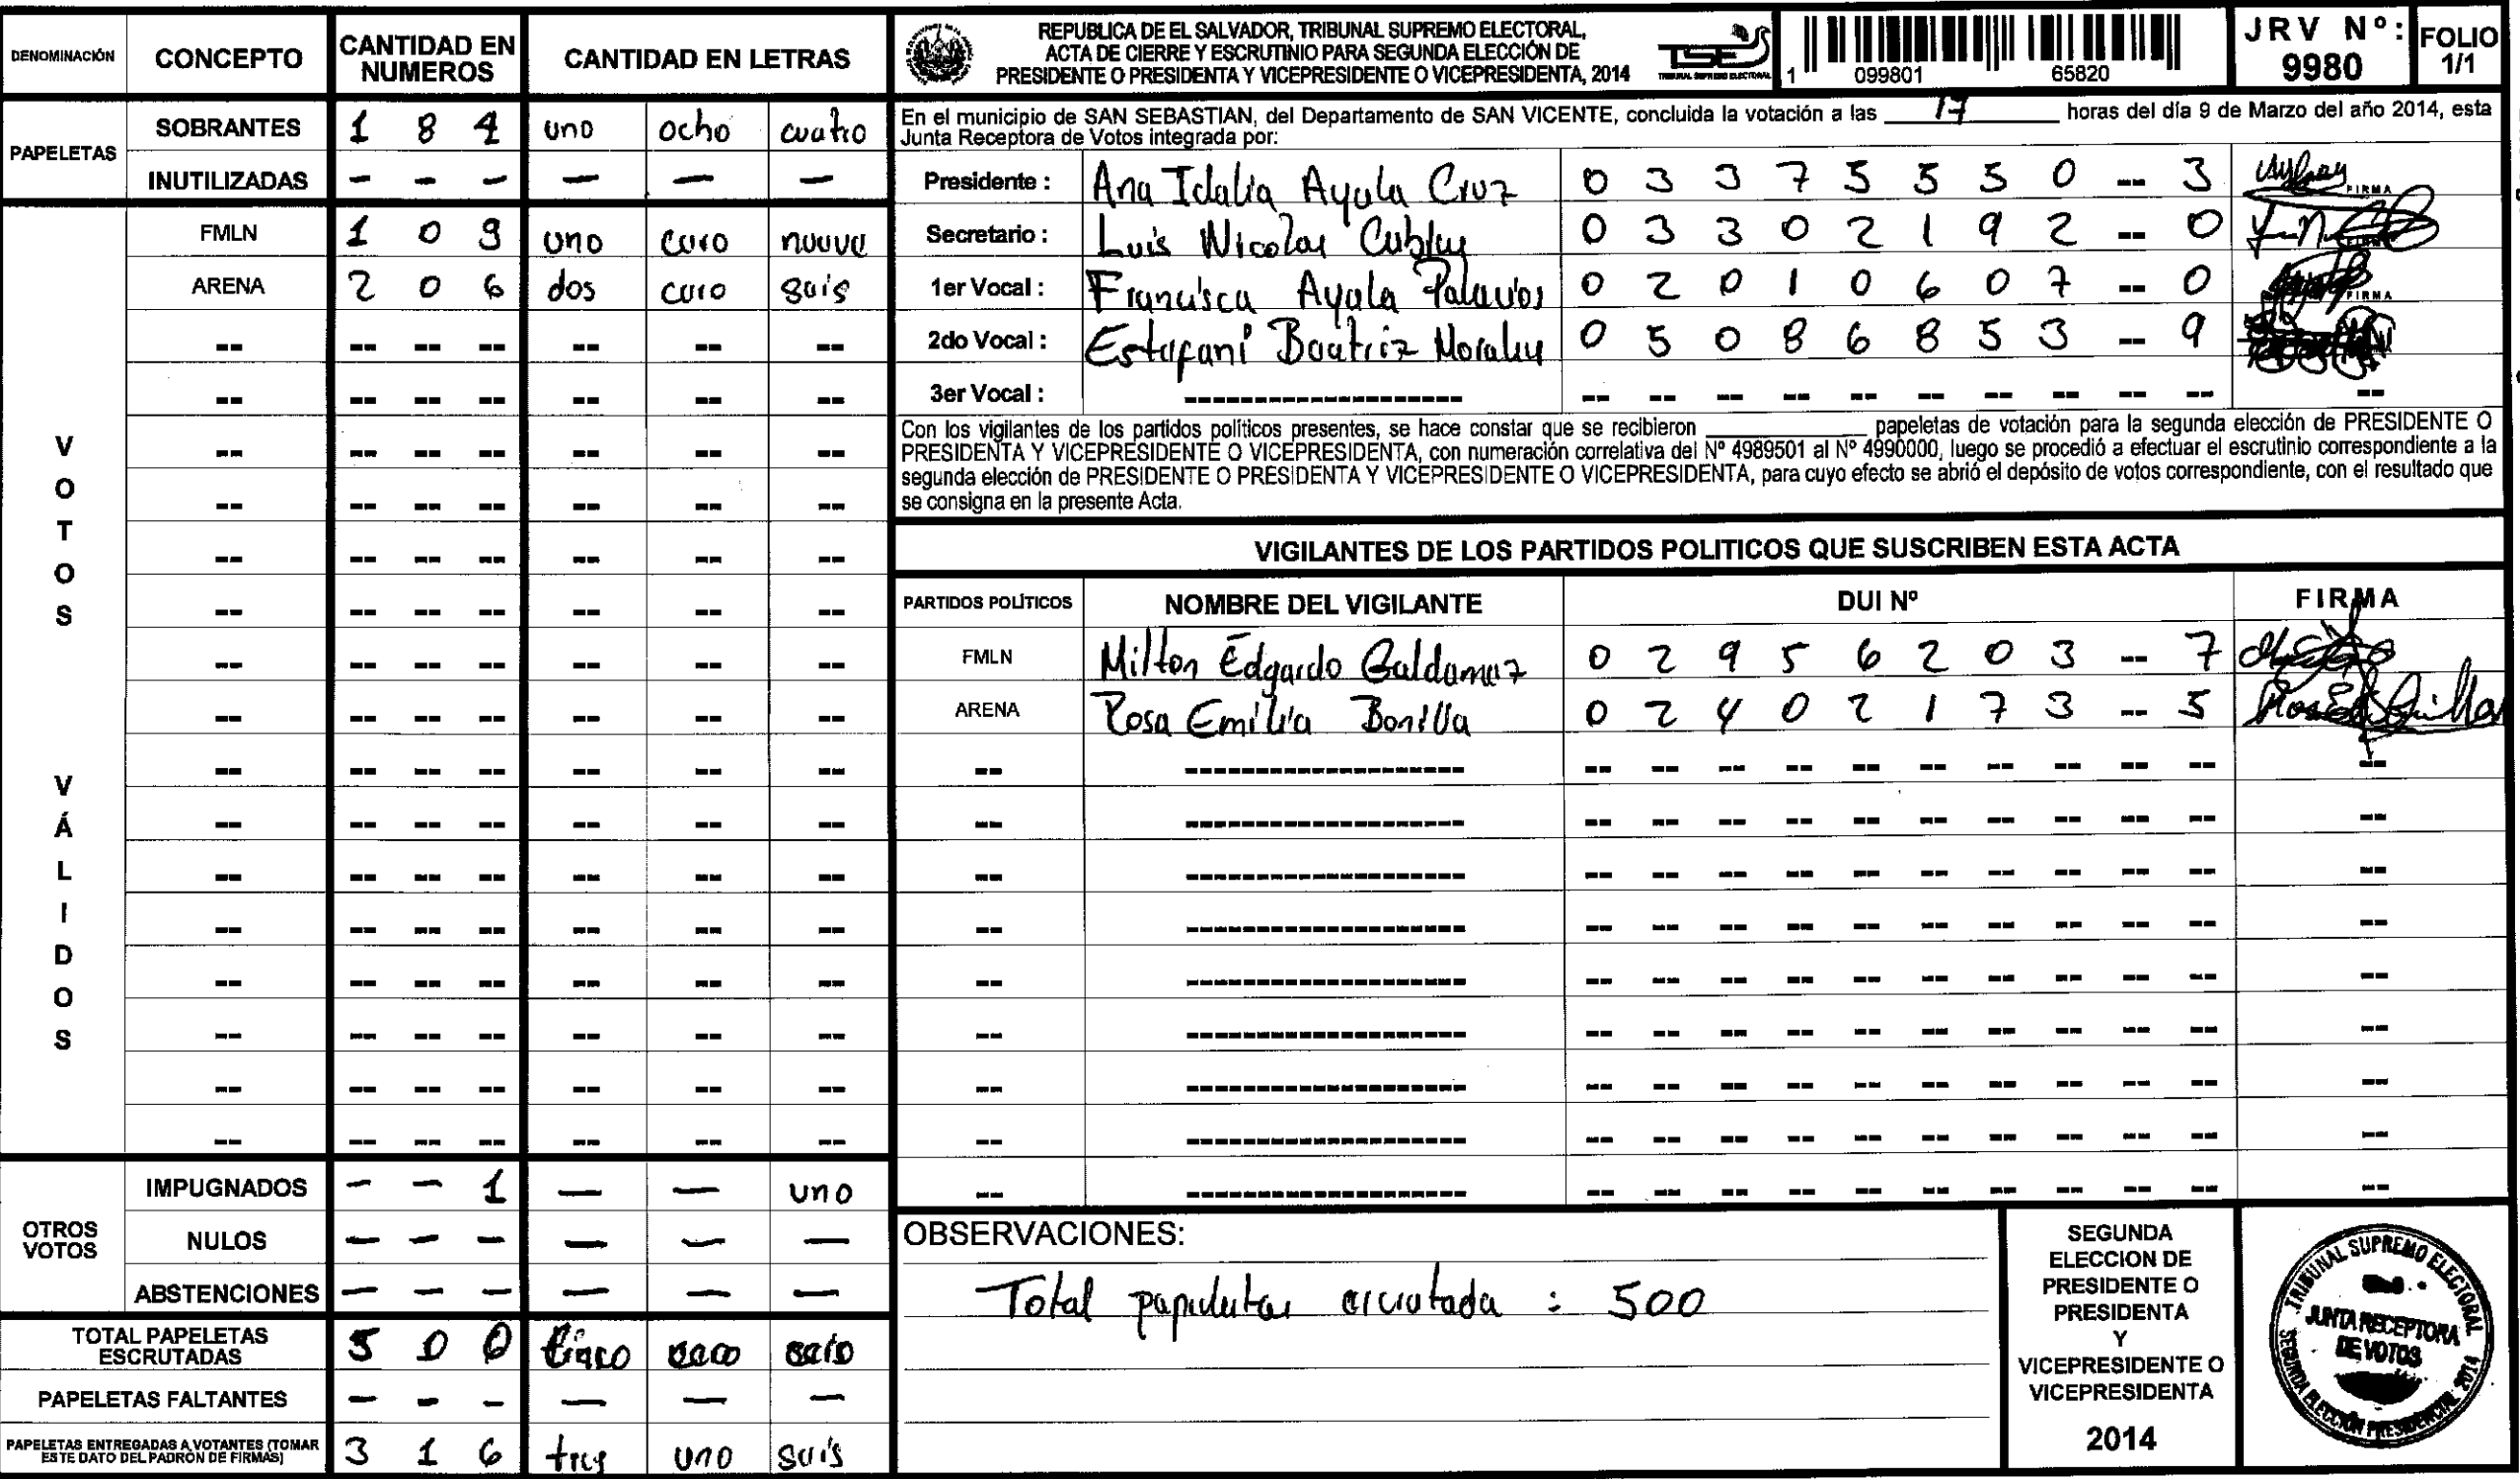 DENOMINACIÓN CONCEPTO CANTIDAD EN NUMEROS CANTIDAD EN LETRAS
PAPELETAS
SOBRANTES 1 8 4 uno ocho cuatro
INUTILIZADAS - - - - - -
VOTOS VÁLIDOS
FMLN 1 0 9 uno cero nueve
ARENA 2 0 6 dos cero seis
OTROS VOTOS
IMPUGNADOS - - 1 - - uno
NULOS - - - - - -
ABSTENCIONES - - - - - -
TOTAL PAPELETAS ESCRUTADAS 5 0 0 cinco cero cero
PAPELETAS FALTANTES - - - - - -
PAPELETAS ENTREGADAS A VOTANTES (TOMAR ESTE DATO DEL PADRÓN DE FIRMAS) 3 1 6 tres uno seis
REPUBLICA DE EL SALVADOR, TRIBUNAL SUPREMO ELECTORAL,
ACTA DE CIERRE Y ESCRUTINIO PARA SEGUNDA ELECCIÓN DE
PRESIDENTE O PRESIDENTA Y VICEPRESIDENTE O VICEPRESIDENTA, 2014
TSE
TRIBUNAL SUPREMO ELECTORAL
1 099801 65820
JRV Nº: 9980
FOLIO 1/1
En el municipio de SAN SEBASTIAN, del Departamento de SAN VICENTE, concluida la votación a las 17 horas del día 9 de Marzo del año 2014, esta
Junta Receptora de Votos integrada por:
Presidente : Ana Idalia Ayala Cruz 0 3 3 7 5 5 5 0 -- 3 FIRMA
Secretario : Luis Nicolas Cubley 0 3 3 0 2 1 9 2 -- 0
1er Vocal : Francisca Ayala Palacios 0 2 0 1 0 6 0 7 -- 0 FIRMA
2do Vocal : Estefani Beatriz Morales 0 5 0 8 6 8 5 3 -- 9
3er Vocal :
Con los vigilantes de los partidos políticos presentes, se hace constar que se recibieron ____ papeletas de votación para la segunda elección de PRESIDENTE O
PRESIDENTA Y VICEPRESIDENTE O VICEPRESIDENTA, con numeración correlativa del Nº 4989501 al Nº 4990000, luego se procedió a efectuar el escrutinio correspondiente a la
segunda elección de PRESIDENTE O PRESIDENTA Y VICEPRESIDENTE O VICEPRESIDENTA, para cuyo efecto se abrió el depósito de votos correspondiente, con el resultado que
se consigna en la presente Acta.
VIGILANTES DE LOS PARTIDOS POLITICOS QUE SUSCRIBEN ESTA ACTA
PARTIDOS POLÍTICOS NOMBRE DEL VIGILANTE DUI Nº FIRMA
FMLN Milton Edgardo Galdamez 0 2 9 5 6 2 0 3 -- 7
ARENA Rosa Emilia Bonilla 0 2 4 0 2 1 7 3 -- 5
OBSERVACIONES:
Total papeletas escrutada : 500
SEGUNDA
ELECCION DE
PRESIDENTE O
PRESIDENTA
Y
VICEPRESIDENTE O
VICEPRESIDENTA
2014
TRIBUNAL SUPREMO ELECTORAL
JUNTA RECEPTORA
DE VOTOS
SEGUNDA ELECCIÓN PRESIDENCIAL 2014